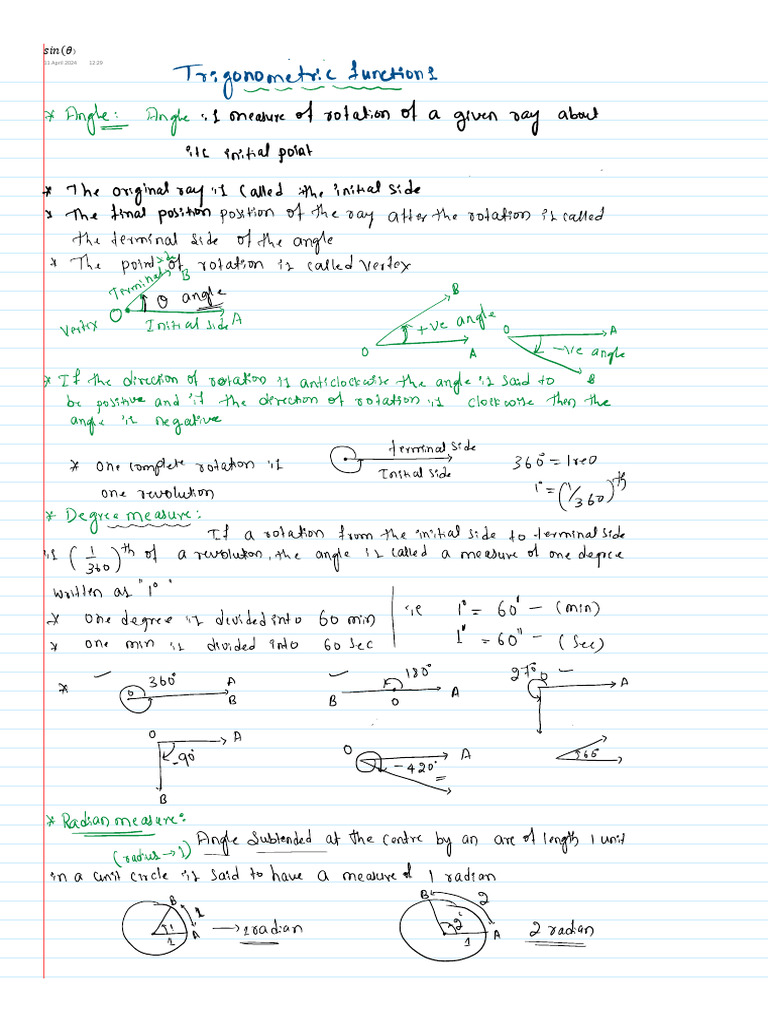 sin(θ)
11 April 2024 12:29
Trigonometric functions
* Angle: Angle is measure of rotation of a given ray about
its initial point
* The original ray is called the initial side
* The final position position of the ray after the rotation is called
the terminal side of the angle
* The point of rotation is called vertex
Terminal B
O θ angle
Vertex Initial side A
B
+ve angle
O A
O A
-ve angle
B
* If the direction of rotation is anticlockwise the angle is said to
be positive and if the direction of rotation is clockwise then the
angle is negative
* one complete rotation is terminal side 360° = 1 reo
one revolution Initial side 1° = (1/360)th
* Degree measure:
If a rotation from the initial side to terminal side
is (1/360)th of a revolution, the angle is called a measure of one degree
written as "1°"
* one degree is divided into 60 min | ie 1° = 60' - (min)
* one min is divided into 60 sec | 1' = 60" - (Sec)
* O 360° A B
180° B O A
270° O A
O A -90° B
O A -420°
60°
* Radian measure:
(radius → 1) Angle Subtended at the centre by an arc of length 1 unit
in a unit circle is said to have a measure of 1 radian
B 1 1 A 1 → 1 radian
B 2 2 A 1 2 radian